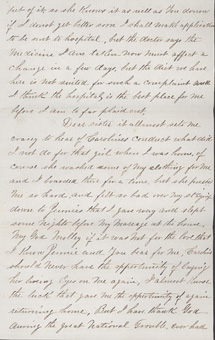 put of it as she knows it as well as I do now
if I do not get better soon I shall make application
to be sent to hospital, but the doctor says the
Medicine I am taken now must affect a
change in a few days, but the diet we have
here is not suited for such a complaint and
I think the hospital is the best place for me
before I am to far pulled out.
Dear sister it allmost sets me
crazy to hear of Carolines conduct what did
I not do for that girl when I was home, of
course she wanted some of my clothing for me
and I boarded there for a time, but she pressed
me so hard and felt so bad over my staying
down to Jennies that I gave way and slept
some nights before My Marriage at its home,
My God Melley if it was not for the love that
I know Jennie and you bear for me, Caroline
should Never have the opportunity of laying
her loving Eyes on Me again, I almost curse
the luck that gave me the opportunity of again
returning home, But I have thank God
during the great National Trouble, ever had